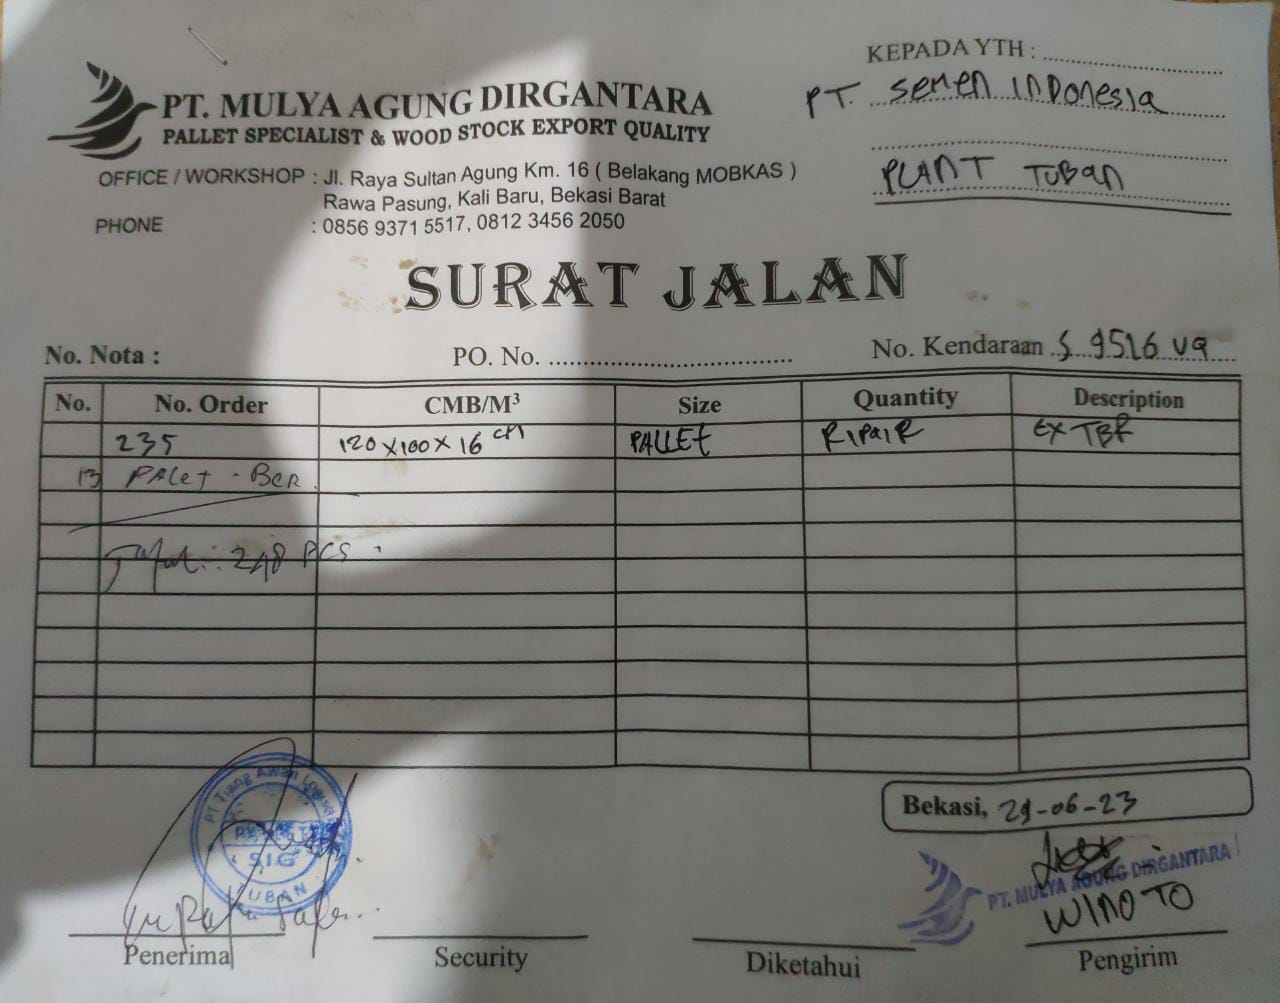 KEPADA YTH :
PT. Semen Indonesia
PLANT TUBAN
PT. MULYA AGUNG DIRGANTARA
PALLET SPECIALIST & WOOD STOCK EXPORT QUALITY
OFFICE / WORKSHOP : Jl. Raya Sultan Agung Km. 16 ( Belakang MOBKAS )
Rawa Pasung, Kali Baru, Bekasi Barat
PHONE : 0856 9371 5517, 0812 3456 2050
SURAT JALAN
No. Nota : PO. No. No. Kendaraan S 9516 UA
No. No. Order CMB/M³ Size Quantity Description
235 120 X 100 X 16 cm PALLET RIPAIR EX TBR
13 PALet - BER
Total : 248 PCS
Bekasi, 29-06-23
PT Tiang Awan Logis
SIG
TUBAN
PT. MULYA AGUNG DIRGANTARA
WINOTO
Penerima Security Diketahui Pengirim